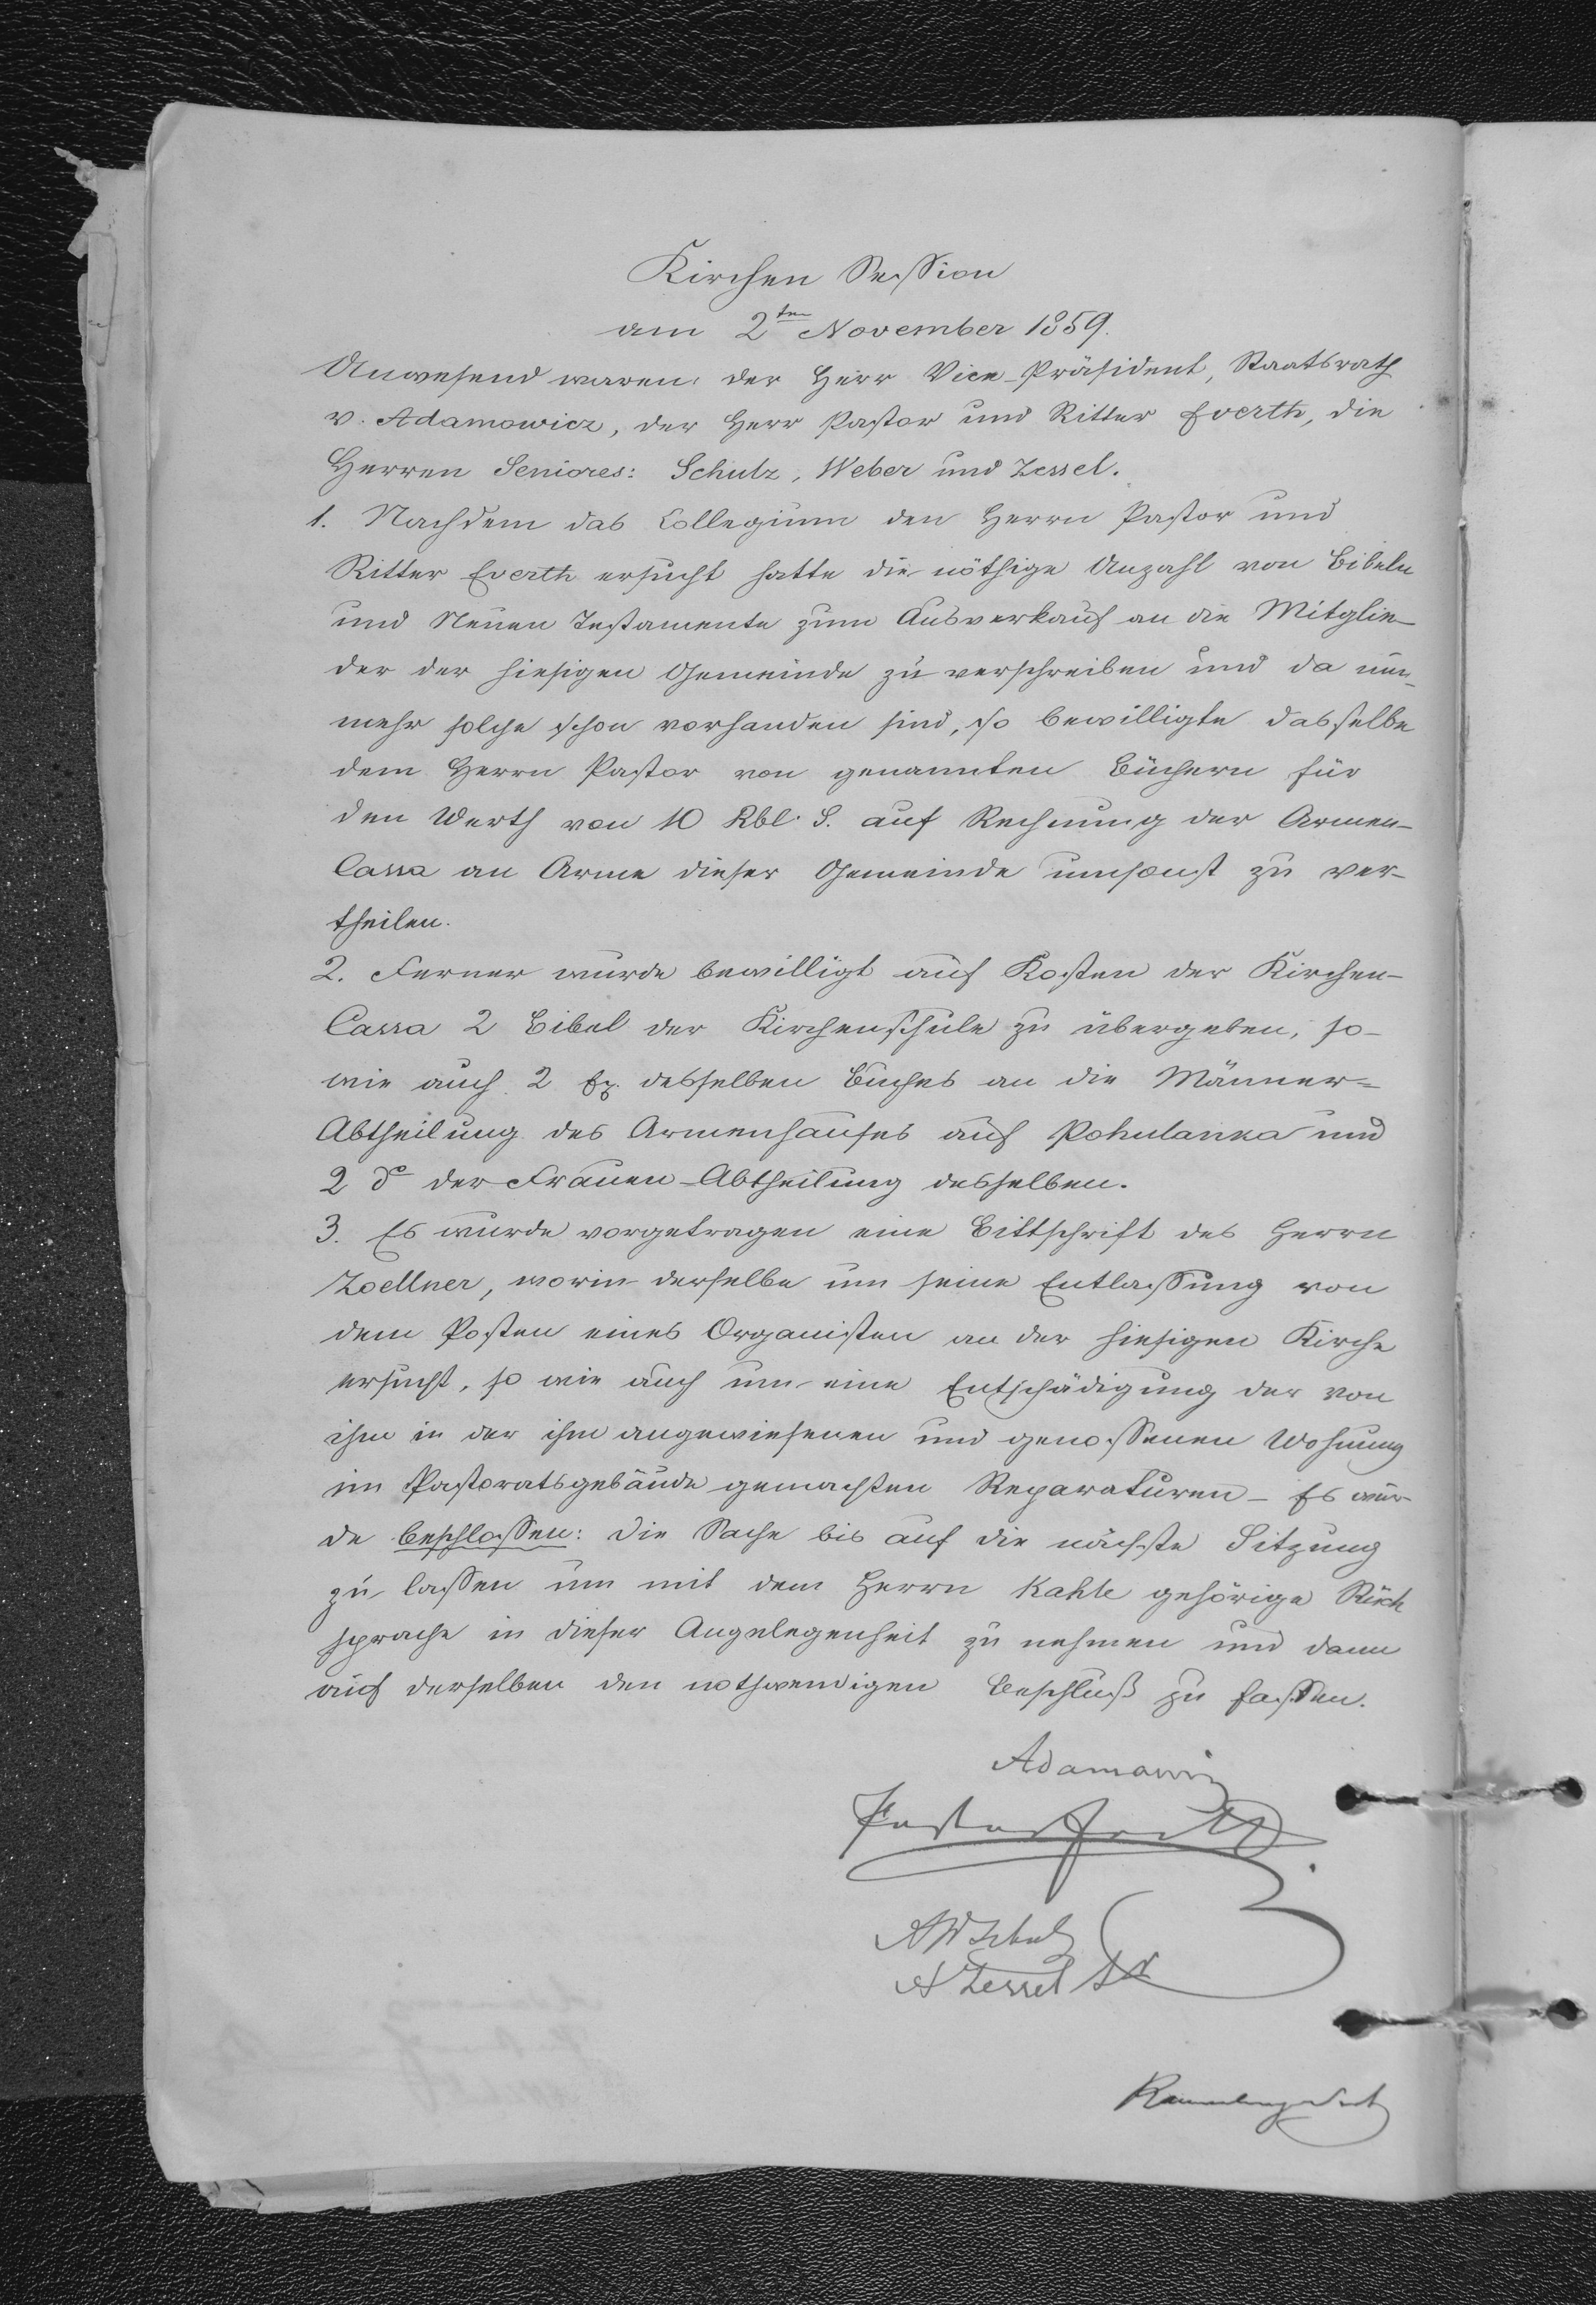 Kirchen Session
am 2ten November 1859.
Anwesend waren: der Herr Vice-Präsident, Staatsrath
v. Adamowicz, der Herr Pastor und Ritter Everth, die
Herren Seniores: Schulz, Weber und Zessel.
1. Nachdem das Collegium den Herrn Pastor und
Ritter Everth ersucht hatte die nöthige Anzahl von Bibeln
und Neuen Testamente zum Ausverkauf an die Mitglie-
der der hiesigen Gemeinde zu verschreiben und da nun-
mehr solche schon vorhanden sind, so bewilligte dasselbe
dem Herrn Pastor von genannten Büchern für
den Werth von 10 Rbl. S. auf Rechnung der Armen-
Cassa an Arme dieser Gemeinde umsonst zu ver-
theilen.
2. Ferner wurde bewilligt auf Kosten der Kirchen-
Cassa 2 Bibel der Kirchenschule zu übergeben, so-
wie auch 2 Ex. desselben Buches an die Männer-
Abtheilung des Armenhauses auf Pohulanka und
2 do der Frauen-Abtheilung desselben.
3. Es wurde vorgetragen eine Bittschrift des Herrn
Zoellner, worin derselbe um seine Entlassung von
dem Posten eines Organisten an der hiesigen Kirche
ersucht, so wie auch um eine Entschädigung der von
ihm in der ihm angewiesenen und genossenen Wohnung
im Pastoratsgebäude gemachten Reparaturen – Es wur-
de beschlossen: die Sache bis auf die nächste Sitzung
zu lassen um mit dem Herrn Kahle gehörige Rück
sprache in dieser Angelegenheit zu nehmen und dann
auf derselben den nothwendigen Beschluß zu fassen.
Adamowicz
Pastor Everth
A W Schulz
A Zessel